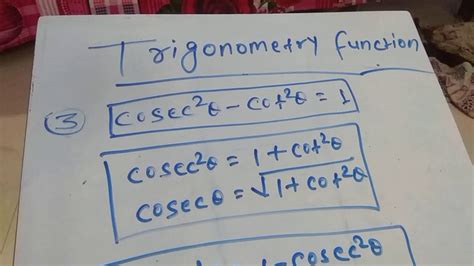 Trigonometry function
③ cosec²θ - cot²θ = 1
cosec²θ = 1 + cot²θ
cosecθ = √1 + cot²θ
cosec²θ